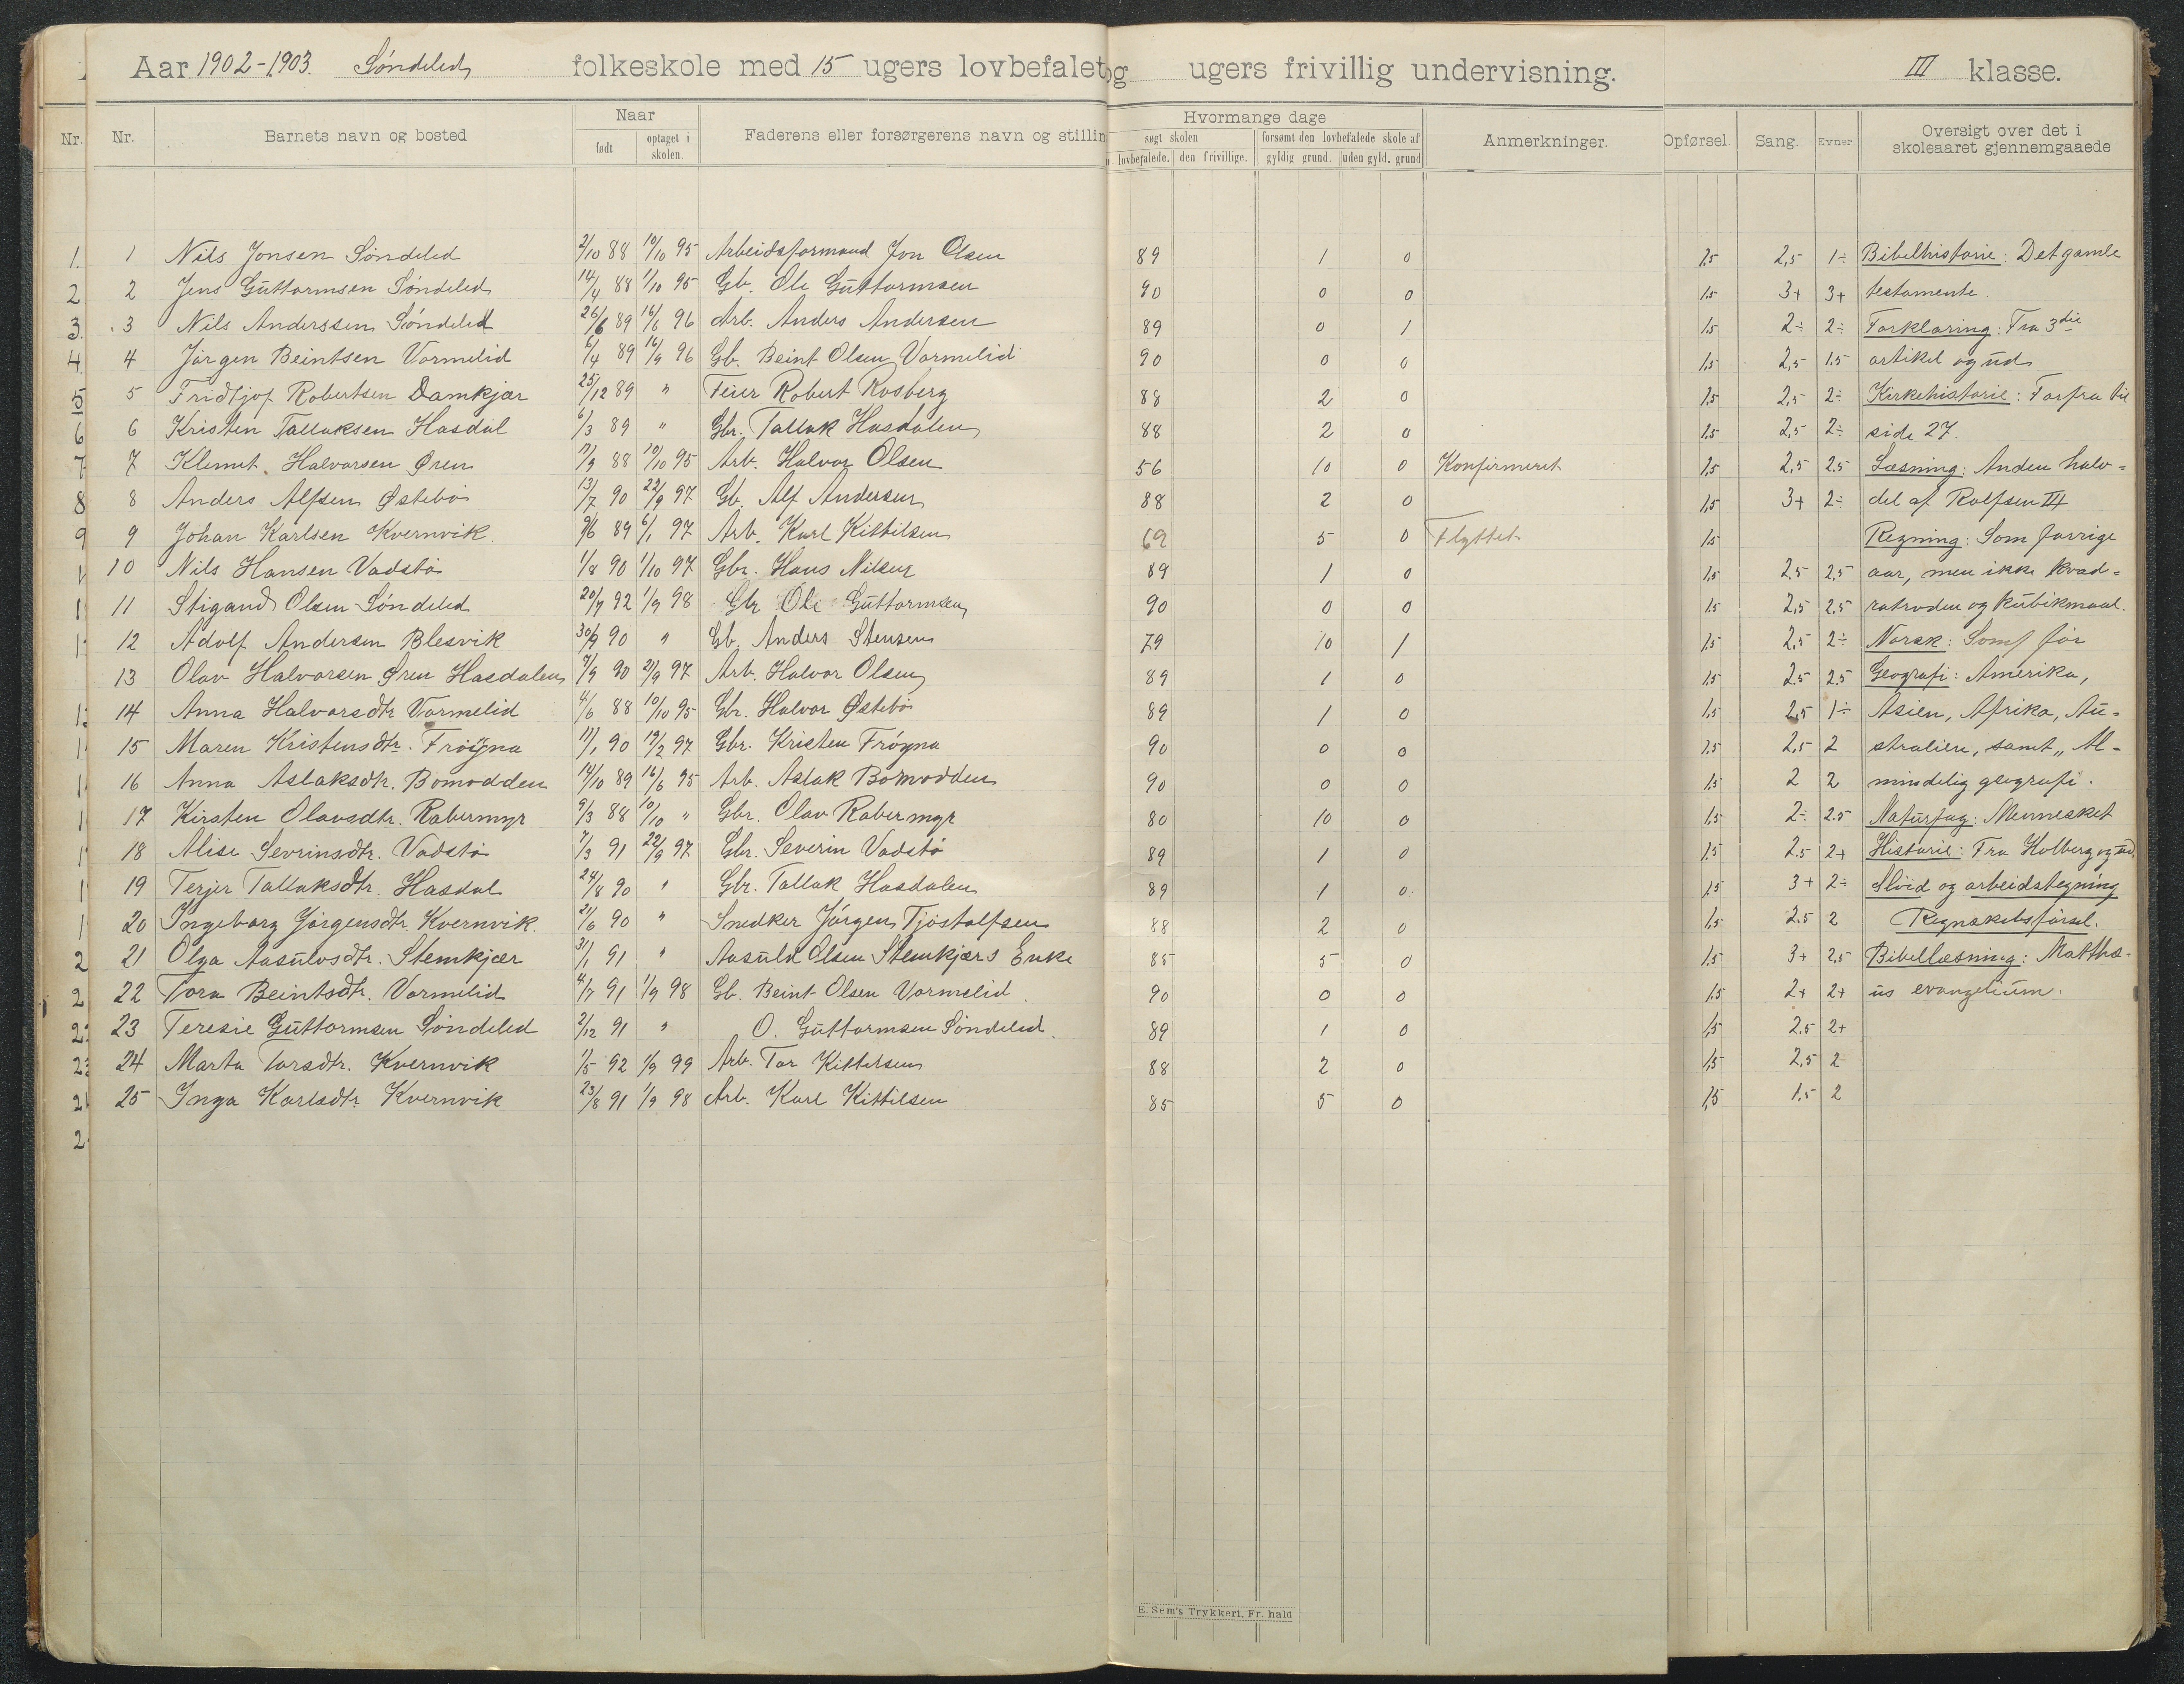 Aar 1902-1903. Søndeled folkeskole med 15 ugers lovbefalet og ugers frivillig undervisning. III klasse.
Nr. Nr. Barnets navn og bosted Naar født optaget i skolen. Faderens eller forsørgerens navn og stillin Hvormange dage søgt skolen lovbefalede. den frivillige. forsømt den lovbefalede skole af gyldig grund. uden gyld. grund Anmerkninger. Opførsel. Sang. Evner Oversigt over det i skoleaaret gjennemgaaede
1. 1 Nils Jonsen Søndeled 2/10 88 10/10 95 Arbeidsformand Jon Olsen 89 1 0 1,5 2,5 1÷ Bibelhistorie: Det gamle
2 2 Jens Guttormsen Søndeled 14/4 88 1/10 95 Gb. Ole Guttormsen 90 0 0 1,5 3+ 3+ testamente.
3. 3 Nils Anderssen Søndeled 26/6 89 16/6 96 Arb. Anders Andersen 89 0 1 1,5 2÷ 2÷ Forklaring: Fra 3die
4. 4 Jørgen Beintsen Vormelid 6/4 89 16/9 96 Gb. Beint Olsen Vormelid 90 0 0 1,5 2,5 1.5 artikel og ud
5 5 Fridtjof Robertsen Damkjær 25/12 89 " Feier Robert Rosberg 88 2 0 1,5 2,5 2÷ Kirkehistorie: Forfra til
6 6 Kristen Tallaksen Hasdal 6/3 89 " Gbr. Tallak Hasdalen 88 2 0 1,5 2,5 2÷ side 27.
7 7 Klemet Halvorsen Øren 17/9 88 10/10 95 Arb. Halvor Olsen 56 10 0 Konfirmeret 1,5 2,5 2.5 Læsning: Anden halv=
8 8 Anders Alfsen Østebø 13/7 90 22/9 97 Gb. Alf Andersen 88 2 0 1,5 3+ 2÷ del af Rolfsen III
9 9 Johan Karlsen Kvernvik. 9/6 89 6/1 97 Arb. Karl Kittilsen 69 5 0 Flyttet 1,5 Regning: Som forrige
10 Nils Hansen Vadstø 1/8 90 1/10 97 Gbr. Hans Nilsen 89 1 0 1,5 2.5 2,5 aar, men ikke kvad=
11 Stigand Olsen Søndeled 20/7 92 1/9 98 Gbr Ole Guttormsen 90 0 0 1,5 2,5 2.5 ratroden og kubikmaal.
12 Adolf Andersen Blesvik 30/9 90 " Gb. Anders Stensen 79 10 1 1,5 2,5 2÷ Norsk: Som før
13 Olav Halvorsen Øren Hasdalen 7/9 90 21/9 97 Arb. Halvor Olsen 89 1 0 1,5 2.5 2.5 Geografi: Amerika,
14 Anna Halvorsdtr Vormelid 4/6 88 10/10 95 Gbr. Halvor Østebø 89 1 0 1,5 2,5 1÷ Asien, Afrika, Au=
15 Maren Kristensdtr. Frøyna 17/1 90 19/2 97 Gbr. Kristen Frøyna 90 0 0 1,5 2,5 2 stralien, samt „Al-
16 Anna Aslaksdtr. Bomodden 14/10 89 16/6 95 Arb. Aslak Bomodden 90 0 0 1,5 2 2 mindelig geografi.
17 Kirsten Olavsdtr. Rabermyr 9/3 88 10/10 " Gbr. Olav Rabermyr 80 10 0 1,5 2÷ 2.5 Naturfag: Mennesket
18 Alise Sevrinsdtr. Vadstø 7/3 91 22/9 97 Gbr. Severin Vadstø 89 1 0 1,5 2.5 2+ Historie: Fra Holberg og ud.
19 Terjer Tallaksdtr. Hasdal 24/8 90 " Gbr. Tallak Hasdalen 89 1 0 1,5 3+ 2÷ Sløid og arbeidstegning
20 Ingeborg Jørgensdtr. Kvernvik. 21/6 90 " Snedker Jørgen Tjøstolfsen 88 2 0 1,5 2.5 2 Regnskabsførsel.
21 Olga Aasulvsdtr. Stemkjær 31/1 91 " Aasuld Olsen Stemkjærs Enke 85 5 0 1,5 3+ 2,5 Bibellæsning: Matthæ-
22 Tora Beintsdtr. Vormelid 4/7 91 1/9 98 Gb. Beint Olsen Vormelid. 90 0 0 1,5 2+ 2+ us evangelium.
23 Teresie Guttormsen Søndeled 2/12 91 " O. Guttormsen Søndeled. 89 1 0 1,5 2.5 2+
24 Marta Torsdtr. Kvernvik 1/5 92 1/9 99 Arb. Tor Kittelsen 88 2 0 1,5 2,5 2
25 Inga Karlsdtr. Kvernvik 23/8 91 1/9 98 Arb. Karl Kittilsen 85 5 0 1,5 1.5 2
E. Sem's Trykkeri, Fr. hald